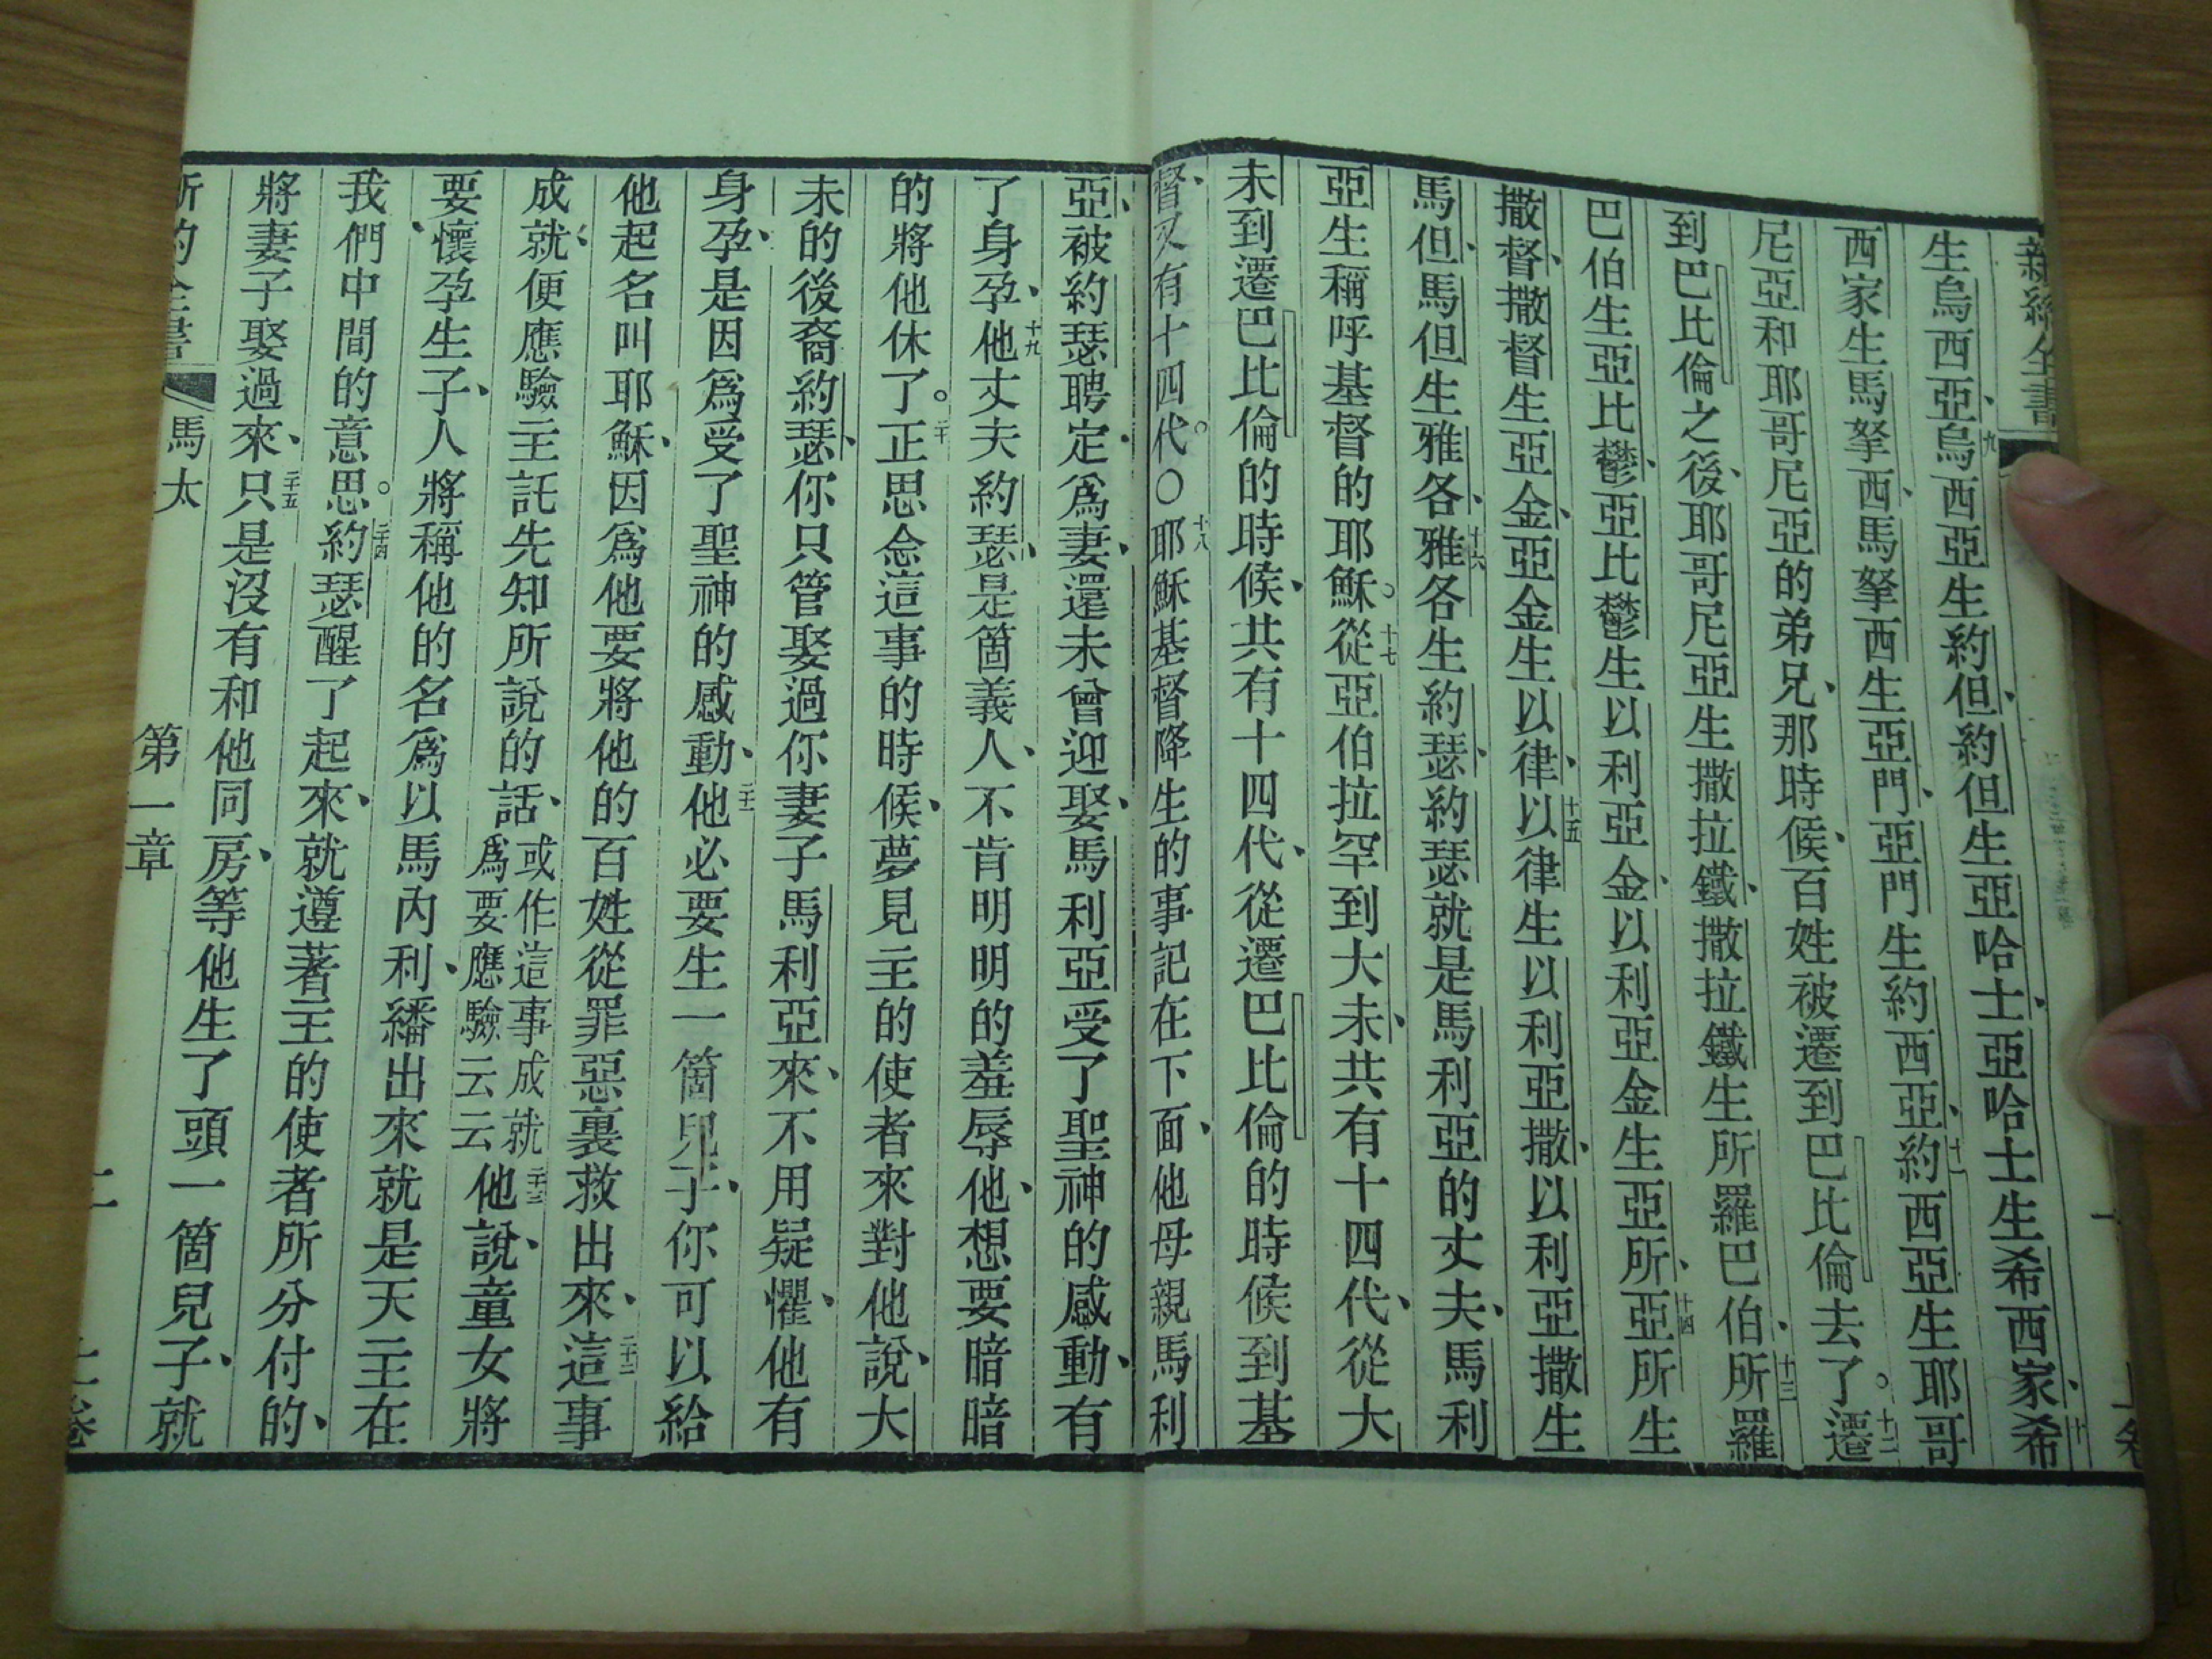 新約全書
一
上卷
生烏西亞、九烏西亞生約但、約但生亞哈士、亞哈士生希西家、十希
西家生馬拏西、馬拏西生亞門、亞門生約西亞、十一約西亞生耶哥
尼亞和耶哥尼亞的弟兄、那時候、百姓被遷到巴比倫去了。十二遷
到巴比倫之後、耶哥尼亞生撒拉鐵、撒拉鐵生所羅巴伯、十三所羅
巴伯生亞比鬱、亞比鬱生以利亞金、以利亞金生亞所、十四亞所生
撒督、撒督生亞金、亞金生以律、十五以律生以利亞撒、以利亞撒生
馬但、馬但生雅各、十六雅各生約瑟、約瑟就是馬利亞的丈夫、馬利
亞生稱呼基督的耶穌。十七從亞伯拉罕到大未、共有十四代、從大
未到遷巴比倫的時候、共有十四代、從遷巴比倫的時候到基
督、又有十四代。○十八耶穌基督降生的事記在下面、他母親馬利
亞、被約瑟聘定爲妻、還未曾迎娶、馬利亞受了聖神的感動、有
了身孕、十九他丈夫約瑟、是箇義人、不肯明明的羞辱他、想要暗暗
的將他休了。二十正思念這事的時候、夢見主的使者來對他說、大
未的後裔約瑟、你只管娶過你妻子馬利亞來、不用疑懼、他有
身孕、是因爲受了聖神的感動、二十一他必要生一箇兒子、你可以給
他起名叫耶穌、因爲他要將他的百姓從罪惡裏救出來、二十二這事
成就、便應驗主託先知所說的話、或作這事成就爲要應驗云云二十三他說、童女將
要懷孕生子、人將稱他的名爲以馬內利、繙出來就是天主在
我們中間的意思。二十四約瑟醒了起來、就遵著主的使者所分付的、
將妻子娶過來、二十五只是沒有和他同房、等他生了頭一箇兒子、就
馬太
第一章